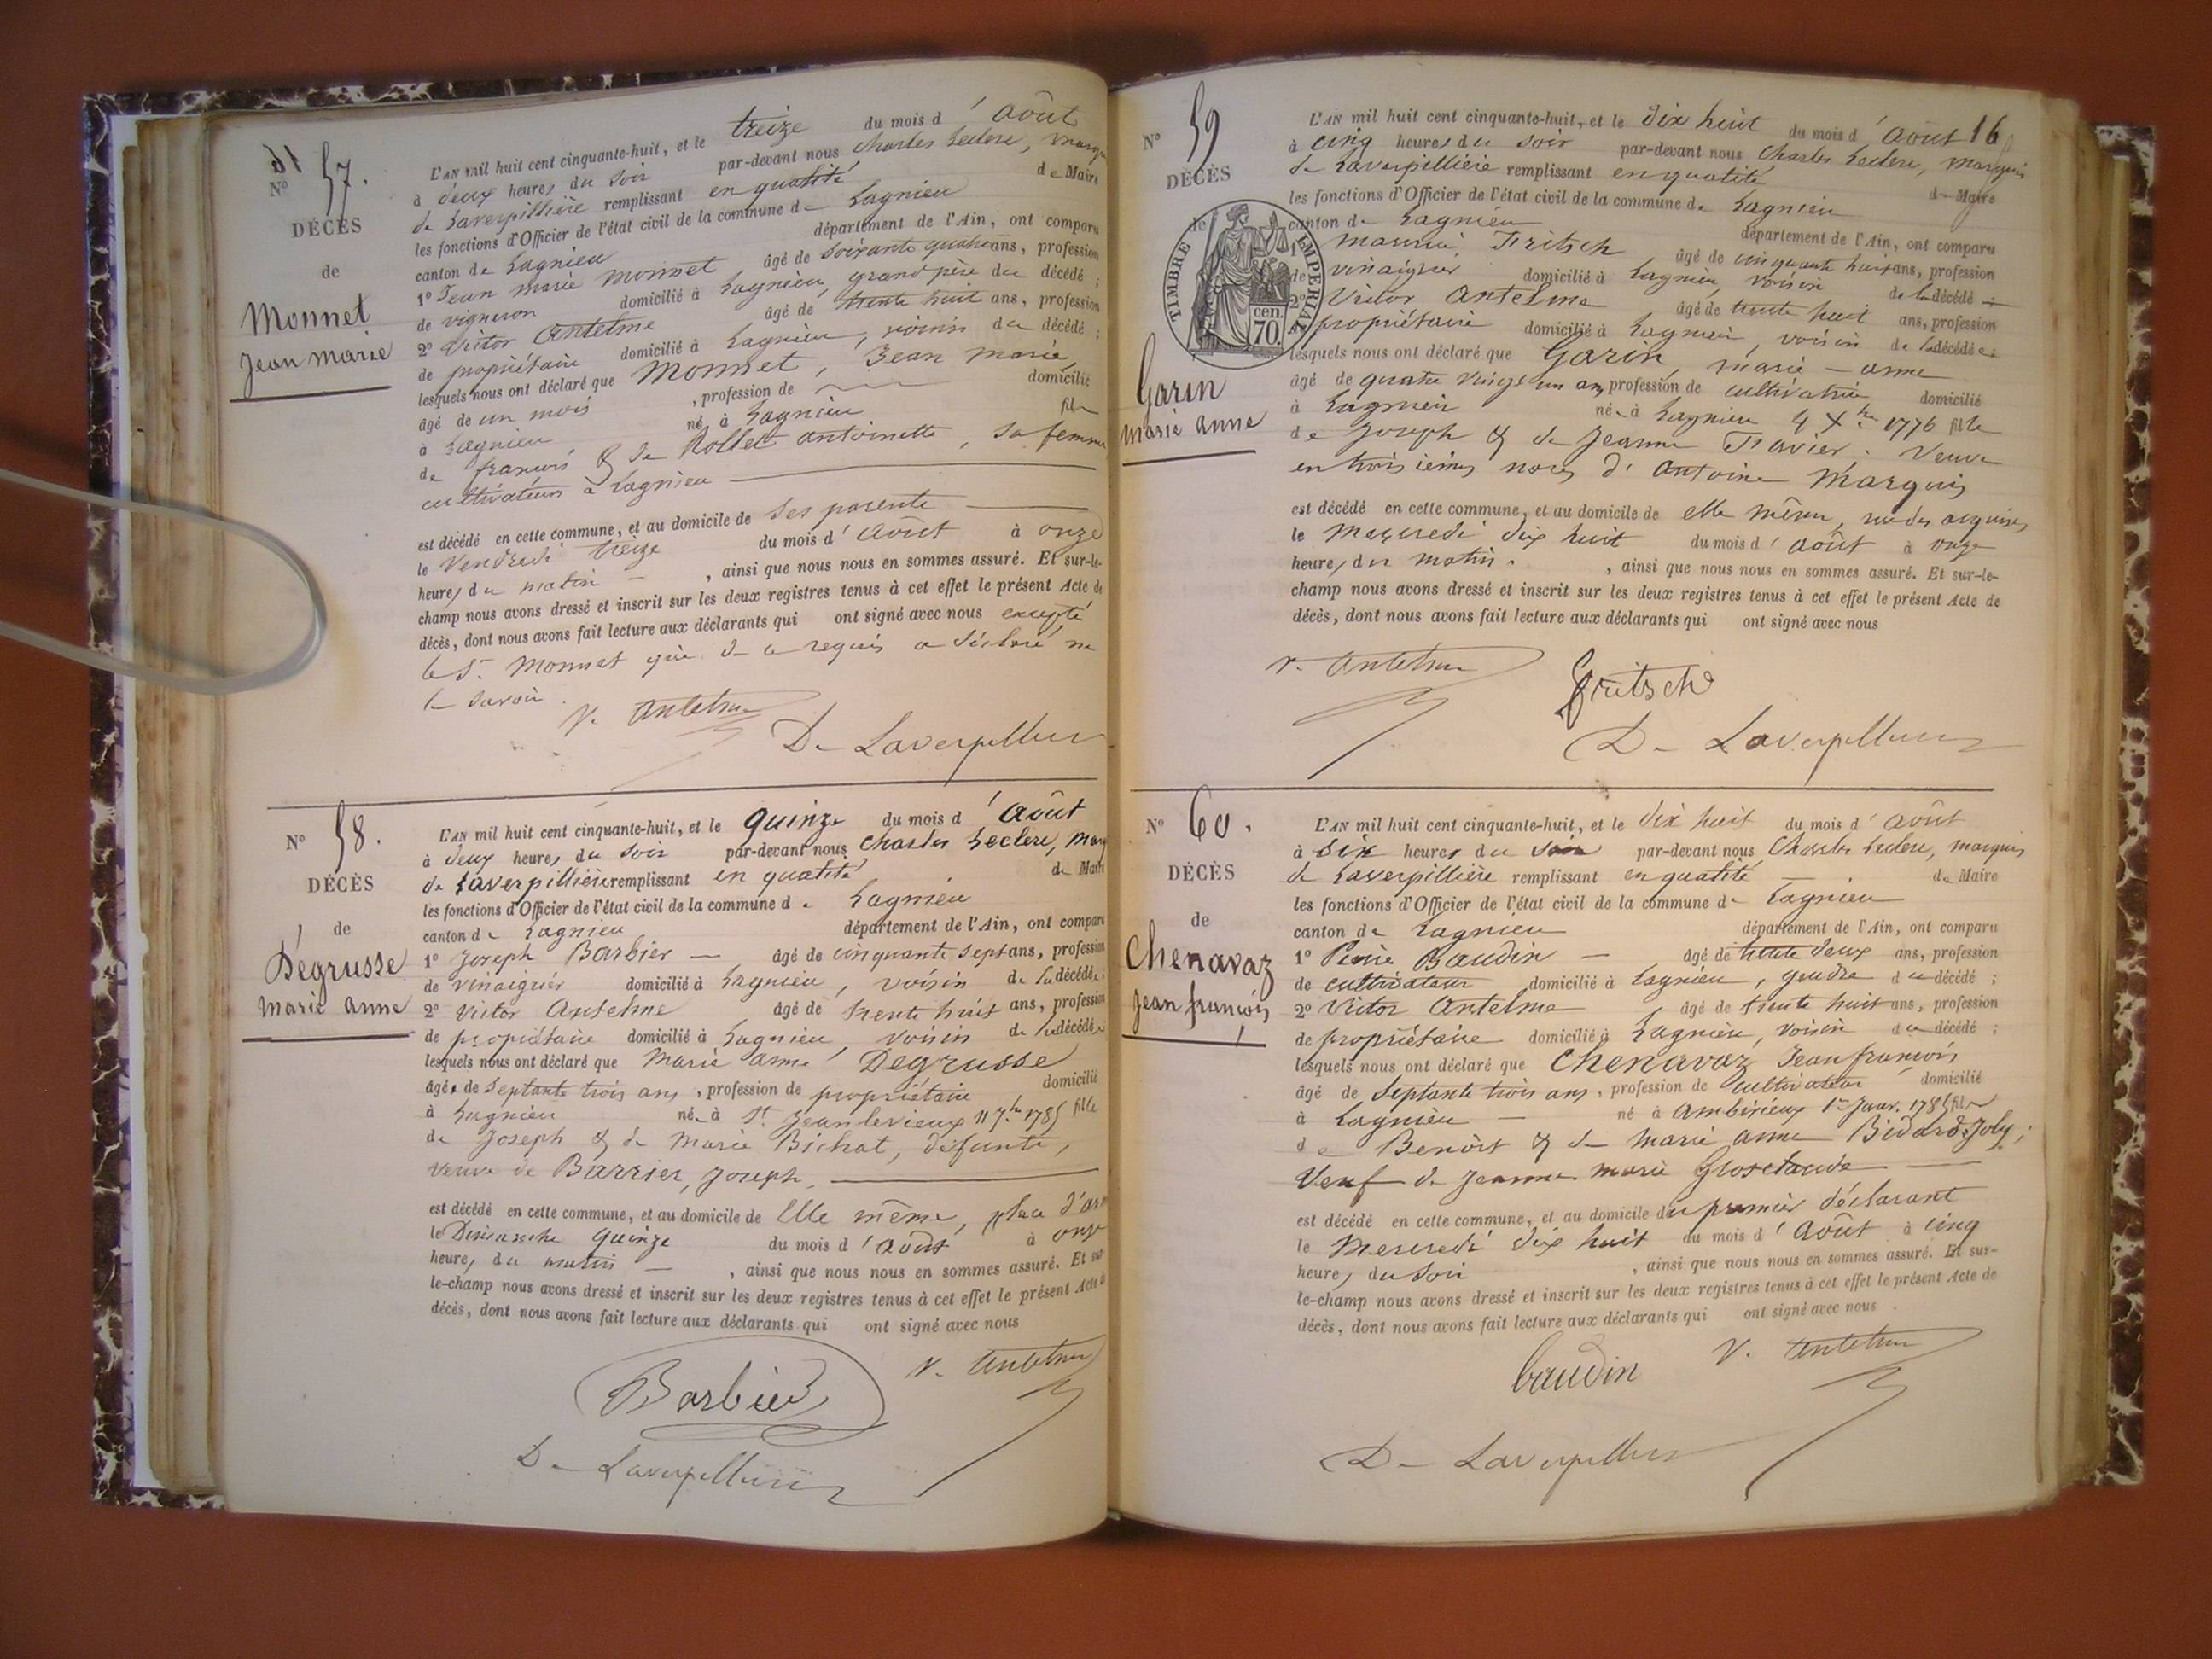 N° 57.
DÉCÈS
de
Monnet
Jean Marie
L'AN mil huit cent cinquante-huit, et le treize du mois d'Août
à deux heures du soir par-devant nous Charles Leclerc, marquis
de Laverpillière remplissant en qualité de Maire
les fonctions d'Officier de l'état civil de la commune de Lagnieu
canton de Lagnieu département de l'Ain, ont comparu
1° Jean Marie Monnet âgé de soixante quatre ans, profession
de vigneron domicilié à Lagnieu, grand père du décédé ;
2° Victor Antelme âgé de trente huit ans, profession
de propriétaire domicilié à Lagnieu, voisin du décédé ;
lesquels nous ont déclaré que Monnet, Jean Marie,
âgé de un mois, profession de domicilié
à Lagnieu né à Lagnieu fils
de françois & de Rollet antoinette, sa femme
cultivateurs à Lagnieu
est décédé en cette commune, et au domicile de ses parents
le Vendredi treize du mois d'Août à onze
heures du matin, ainsi que nous nous en sommes assuré. Et sur-le-
champ nous avons dressé et inscrit sur les deux registres tenus à cet effet le présent Acte de
décès, dont nous avons fait lecture aux déclarants qui ont signé avec nous excepté
le Sr. Monnet qui de ce requis a déclaré ne
le savoir.
V. Antelme
De Laverpillière
N° 58.
DÉCÈS
de
Dégrusse
Marie Anne
L'AN mil huit cent cinquante-huit, et le quinze du mois d'Août
à deux heures du soir par-devant nous Charles Leclerc, marq
de Laverpillière remplissant en qualité de Maire
les fonctions d'Officier de l'état civil de la commune de Lagnieu
canton de Lagnieu département de l'Ain, ont comparu
1° Joseph Barbier âgé de cinquante sept ans, profession
de vinaigrier domicilié à Lagnieu, voisin de la décédée ;
2° Victor Antelme âgé de trente huit ans, profession
de propriétaire domicilié à Lagnieu, voisin de la décédée
lesquels nous ont déclaré que Marie anne Degrusse
âgée de septante trois ans, profession de propriétaire domicilié
à Lagnieu née à St. Jean le vieux 11 7bre 1785 fille
de Joseph & de Marie Bichat, défunte,
veuve de Barrier, Joseph,
est décédé en cette commune, et au domicile de Elle même, place d'ar
le Dimanche quinze du mois d'Août à onze
heures du matin, ainsi que nous nous en sommes assuré. Et sur
le-champ nous avons dressé et inscrit sur les deux registres tenus à cet effet le présent Acte de
décès, dont nous avons fait lecture aux déclarants qui ont signé avec nous
Barbier V. Antelme
De Laverpillière
16
N° 59
DÉCÈS
de
TIMBRE IMPERIAL
70 cen.
Garin
Marie Anne
L'AN mil huit cent cinquante-huit, et le dix huit du mois d'Août
à cinq heures du soir par-devant nous Charles Leclerc, marquis
de Laverpillière remplissant en qualité de Maire
les fonctions d'Officier de l'état civil de la commune de Lagnieu
canton de Lagnieu département de l'Ain, ont comparu
1° Maurice Fritsch âgé de cinquante huit ans, profession
de vinaigrier domicilié à Lagnieu, voisin de la décédé
2° Victor Antelme âgé de trente huit ans, profession
propriétaire domicilié à Lagnieu, voisin de la décédée ;
lesquels nous ont déclaré que Garin, Marie-anne
âgé de quatre vingt un an, profession de cultivatrice domicilié
à Lagnieu née à Lagnieu 4 Xbre 1776 fille
de Joseph & de Jeanne Travier. Veuve
en troisièmes noces d'Antoine Marquis
est décédé en cette commune, et au domicile de elle même,
le Mercredi dix huit du mois d'Août à onze
heures du matin, ainsi que nous nous en sommes assuré. Et sur-le-
champ nous avons dressé et inscrit sur les deux registres tenus à cet effet le présent Acte de
décès, dont nous avons fait lecture aux déclarants qui ont signé avec nous
V. Antelme
Fritsch
De Laverpillière
N° 60.
DÉCÈS
de
Chenavaz
Jean françois
L'AN mil huit cent cinquante-huit, et le dix huit du mois d'Août
à six heures du soir par-devant nous Charles Leclerc, marquis
de Laverpillière remplissant en qualité de Maire
les fonctions d'Officier de l'état civil de la commune de Lagnieu
canton de Lagnieu département de l'Ain, ont comparu
1° Pierre Baudin âgé de trente deux ans, profession
de cultivateur domicilié à Lagnieu, gendre du décédé ;
2° Victor Antelme âgé de trente huit ans, profession
de propriétaire domicilié à Lagnieu, voisin du décédé ;
lesquels nous ont déclaré que Chenavaz Jean françois
âgé de septante trois ans, profession de cultivateur domicilié
à Lagnieu né à Ambérieux 1er Janv. 1785 fils
de Benoît & de Marie anne Bidard-Joly ;
Veuf de Jeanne Marie Grosclaude
est décédé en cette commune, et au domicile du premier déclarant
le Mercredi dix huit du mois d'Août à cinq
heures du soir, ainsi que nous nous en sommes assuré. Et sur-
le-champ nous avons dressé et inscrit sur les deux registres tenus à cet effet le présent Acte de
décès, dont nous avons fait lecture aux déclarants qui ont signé avec nous.
baudin V. Antelme
De Laverpillière